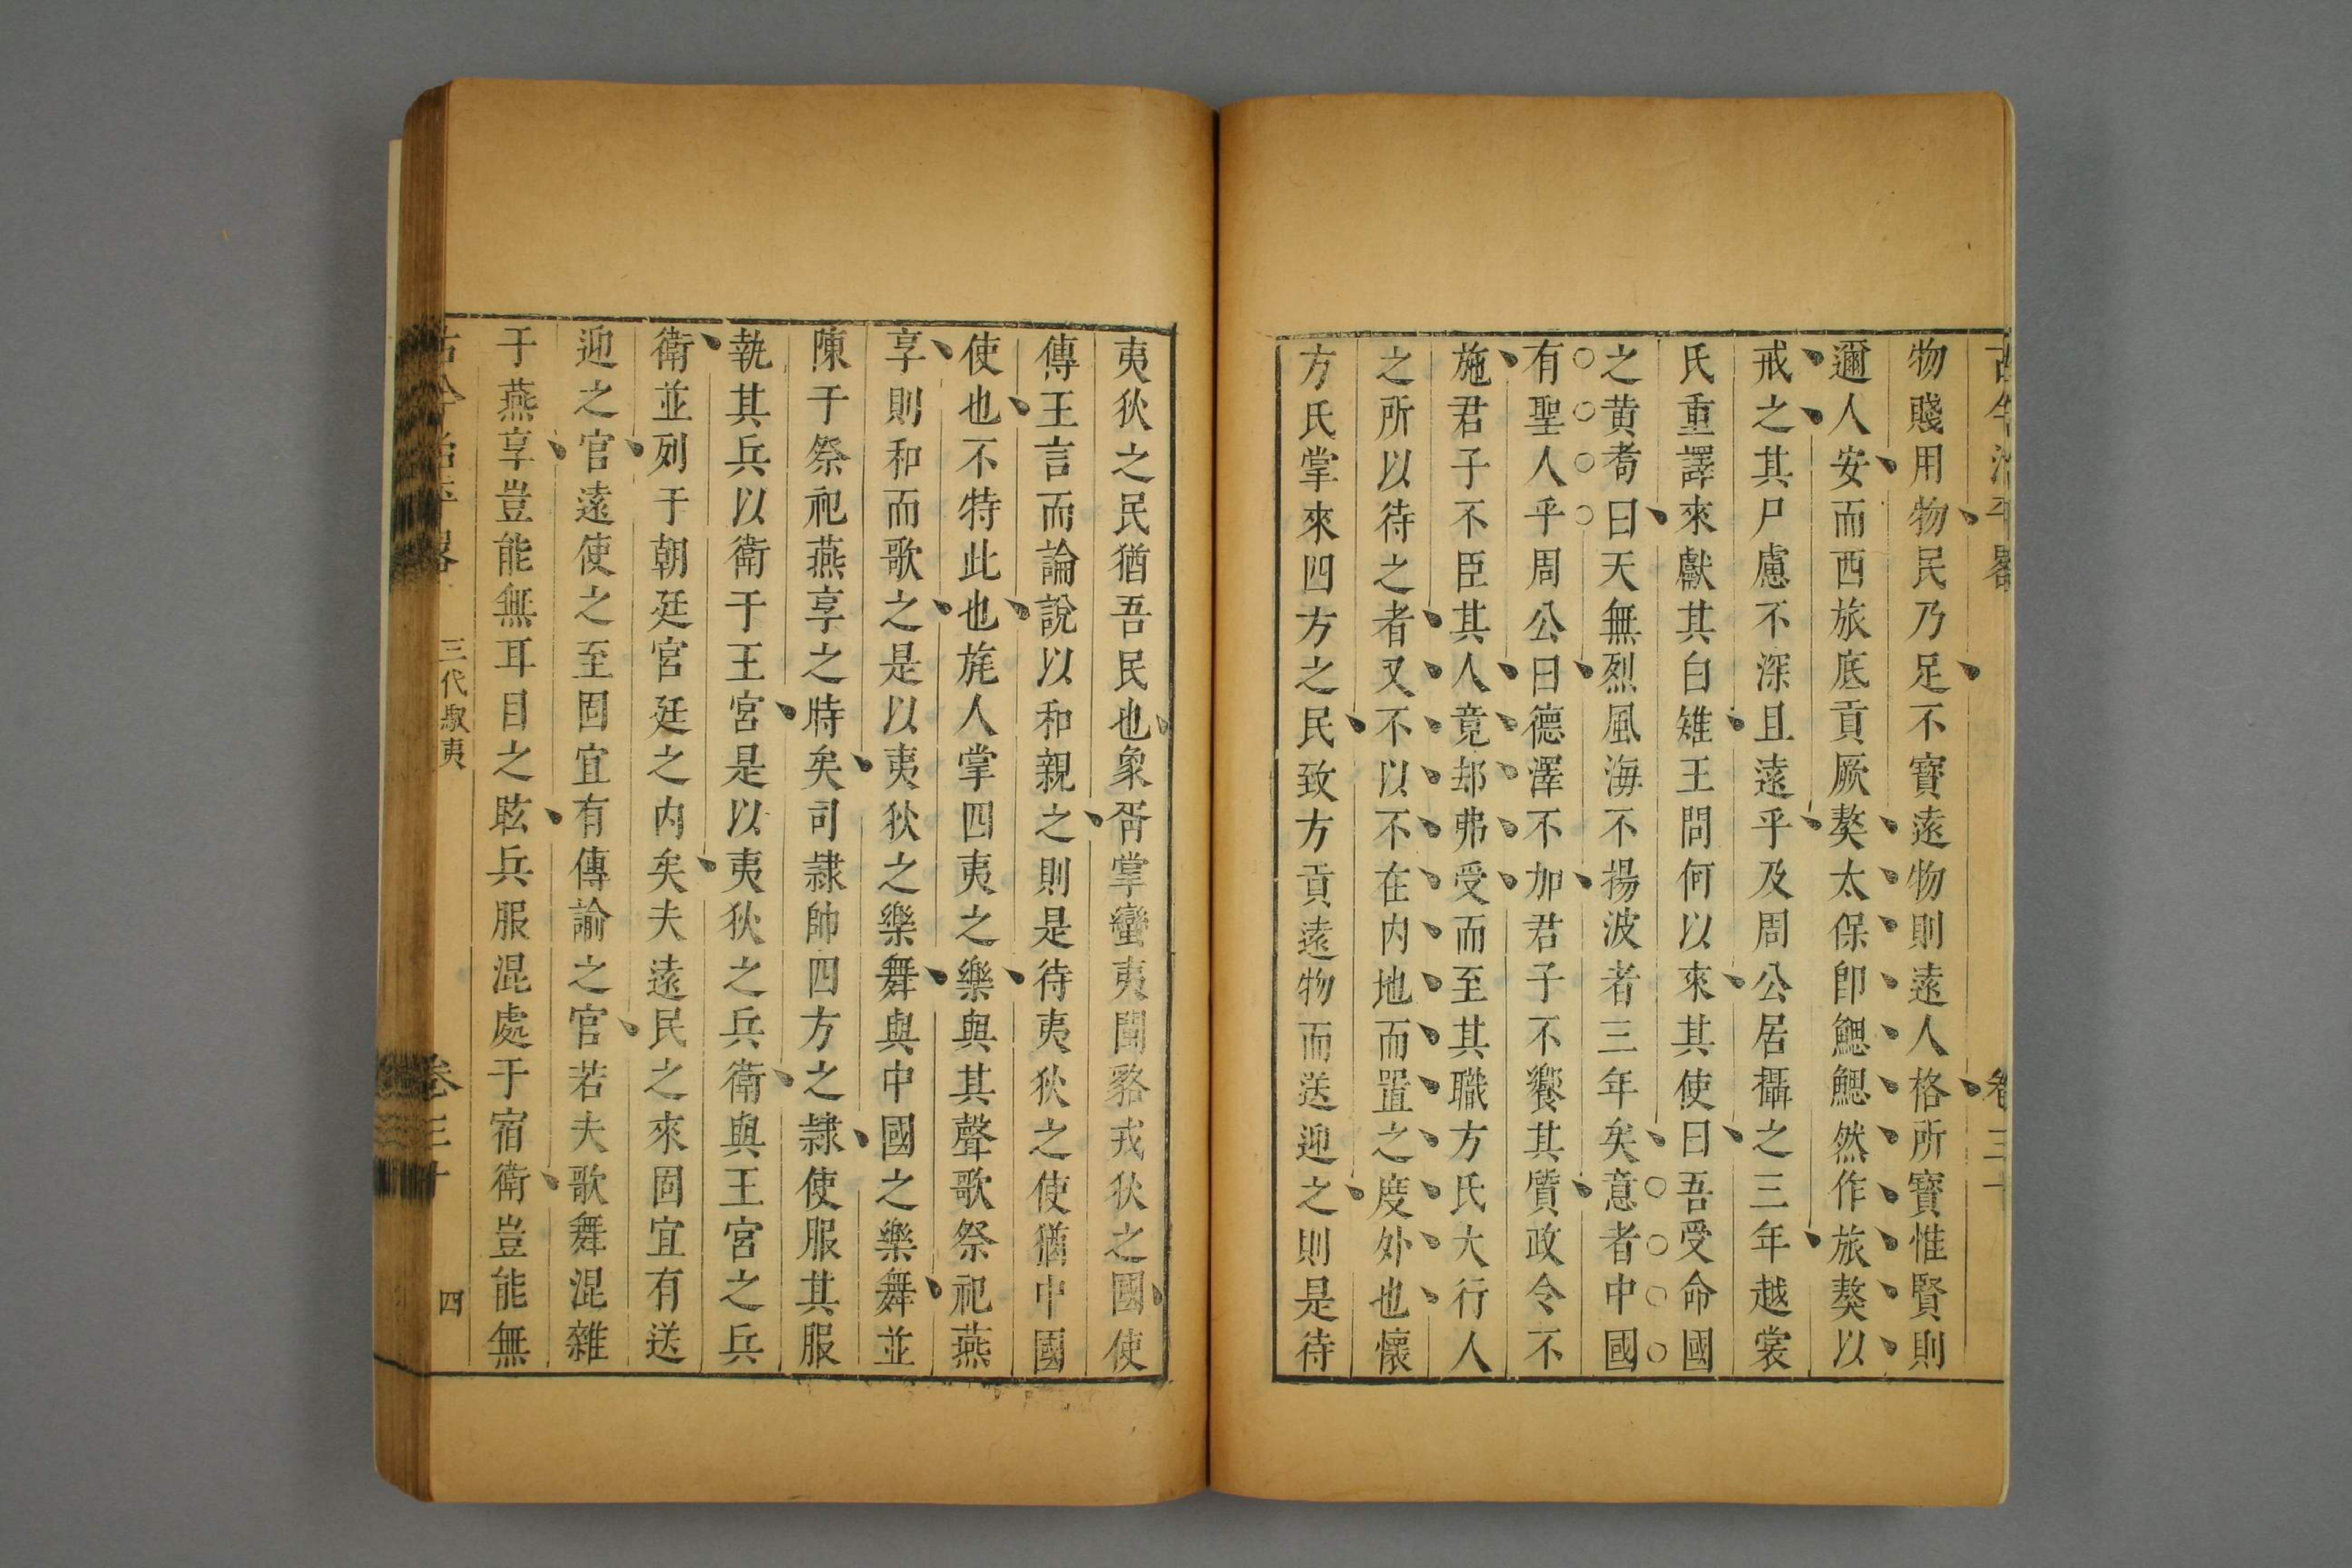 古今治平畧 卷三十
物賤用物民乃足不寶遠物則遠人格所寶惟賢則
邇人安而西旅底貢厥獒太保卽鰓鰓然作旅獒以
戒之其尸慮不深且遠乎及周公居攝之三年越裳
氏重譯來獻其白雉王問何以來其使曰吾受命國
之黄耉曰天無烈風海不揚波者三年矣意者中國
有聖人乎周公曰德澤不加君子不饗其質政令不
施君子不臣其人竟却弗受而至其職方氏大行人
之所以待之者又不以不在内地而置之度外也懷
方氏掌來四方之民致方貢遠物而送迎之則是待
夷狄之民猶吾民也象胥掌蠻夷閩貉戎狄之國使
傳王言而論說以和親之則是待夷狄之使猶中國
使也不特此也旄人掌四夷之樂與其聲歌祭祀燕
享則和而歌之是以夷狄之樂舞與中國之樂舞並
陳于祭祀燕享之時矣司隷帥四方之隷使服其服
執其兵以衛于王宮是以夷狄之兵衛與王宮之兵
衛並列于朝廷宮廷之内矣夫遠民之來固宜有送
迎之官遠使之至固宜有傳諭之官若夫歌舞混雜
于燕享豈能無耳目之眩兵服混處于宿衛豈能無
古今治平畧 三代馭夷 卷三十 四